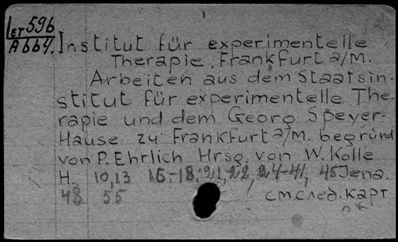 596
A664.
Institut für experimentelle
Therapie, Frankfurt a/M.
Arbeiten aus dem Staatsin-
stitut für experimentelle The-
rapie und dem Georg Speyer-
Hause zu Frankfurt a/M. begründ
von P. Ehrlich Hrsg. von W. Kolle
H. 10,13 15-18, 21, 22, 24-41, 45 Jena.
48 55 см след. карт